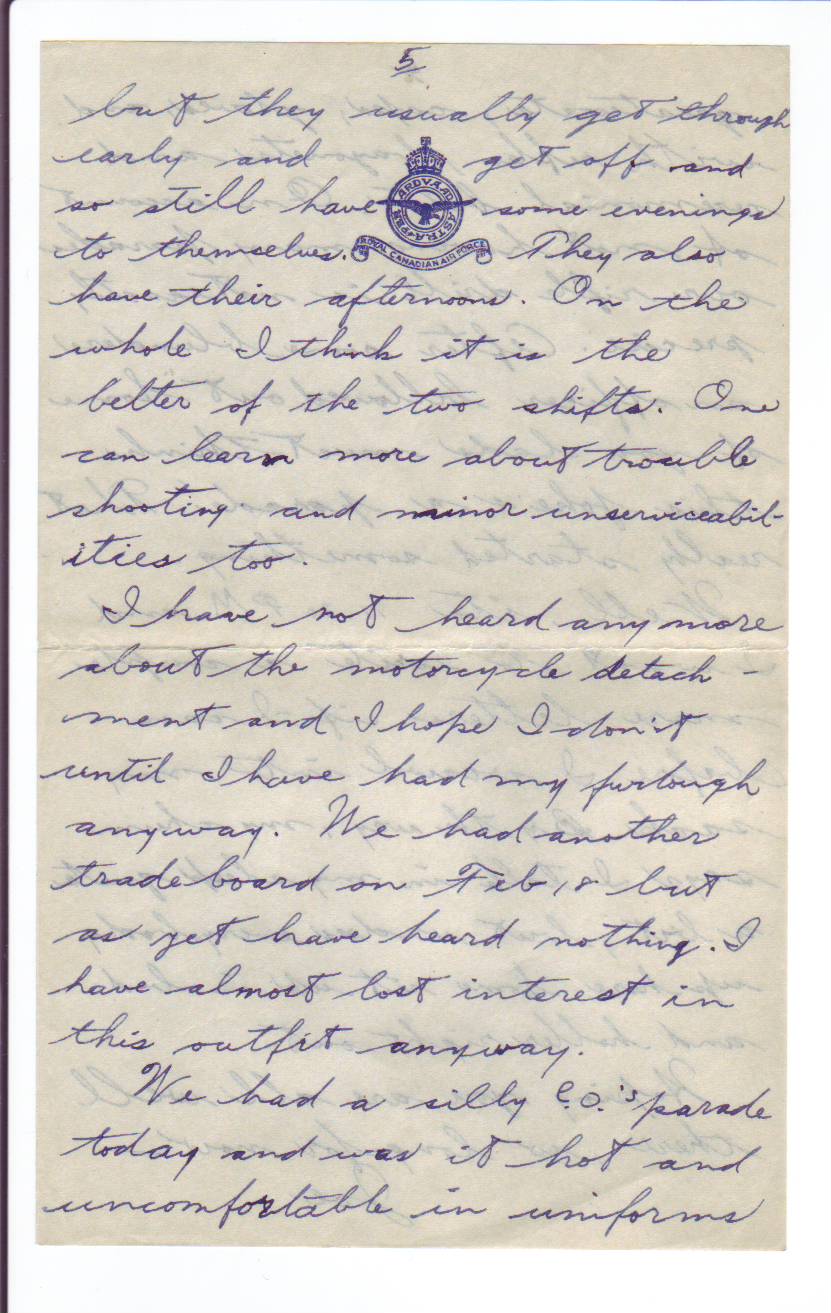 5
but they usually get through
early and get off and
so still have some evenings
to themselves. They also
PER ARDVA AD ASTRA
ROYAL CANADIAN AIR FORCE
have their afternoons. On the
whole I think it is the
better of the two shifts. One
can learn more about trouble
shooting and minor unserviceabil-
ities too.
I have not heard any more
about the motorcycle detach-
ment and I hope I don't
until I have had my furlough
anyway. We had another
trade board on Feb 18 but
as yet have heard nothing. I
have almost lost interest in
this outfit anyway.
We had a silly C.O.'s parade
today and was it hot and
uncomfortable in uniforms